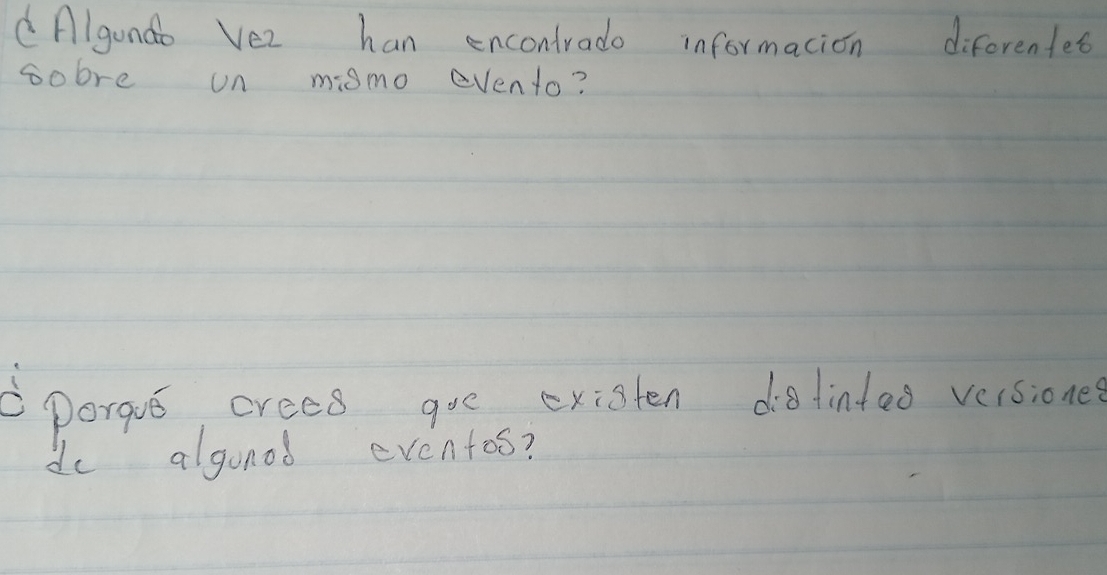 ¿Alguna vez han encontrado información diferentes
sobre un mismo evento?
¿Porqué crees que existen distintas versiones
de algunos eventos?